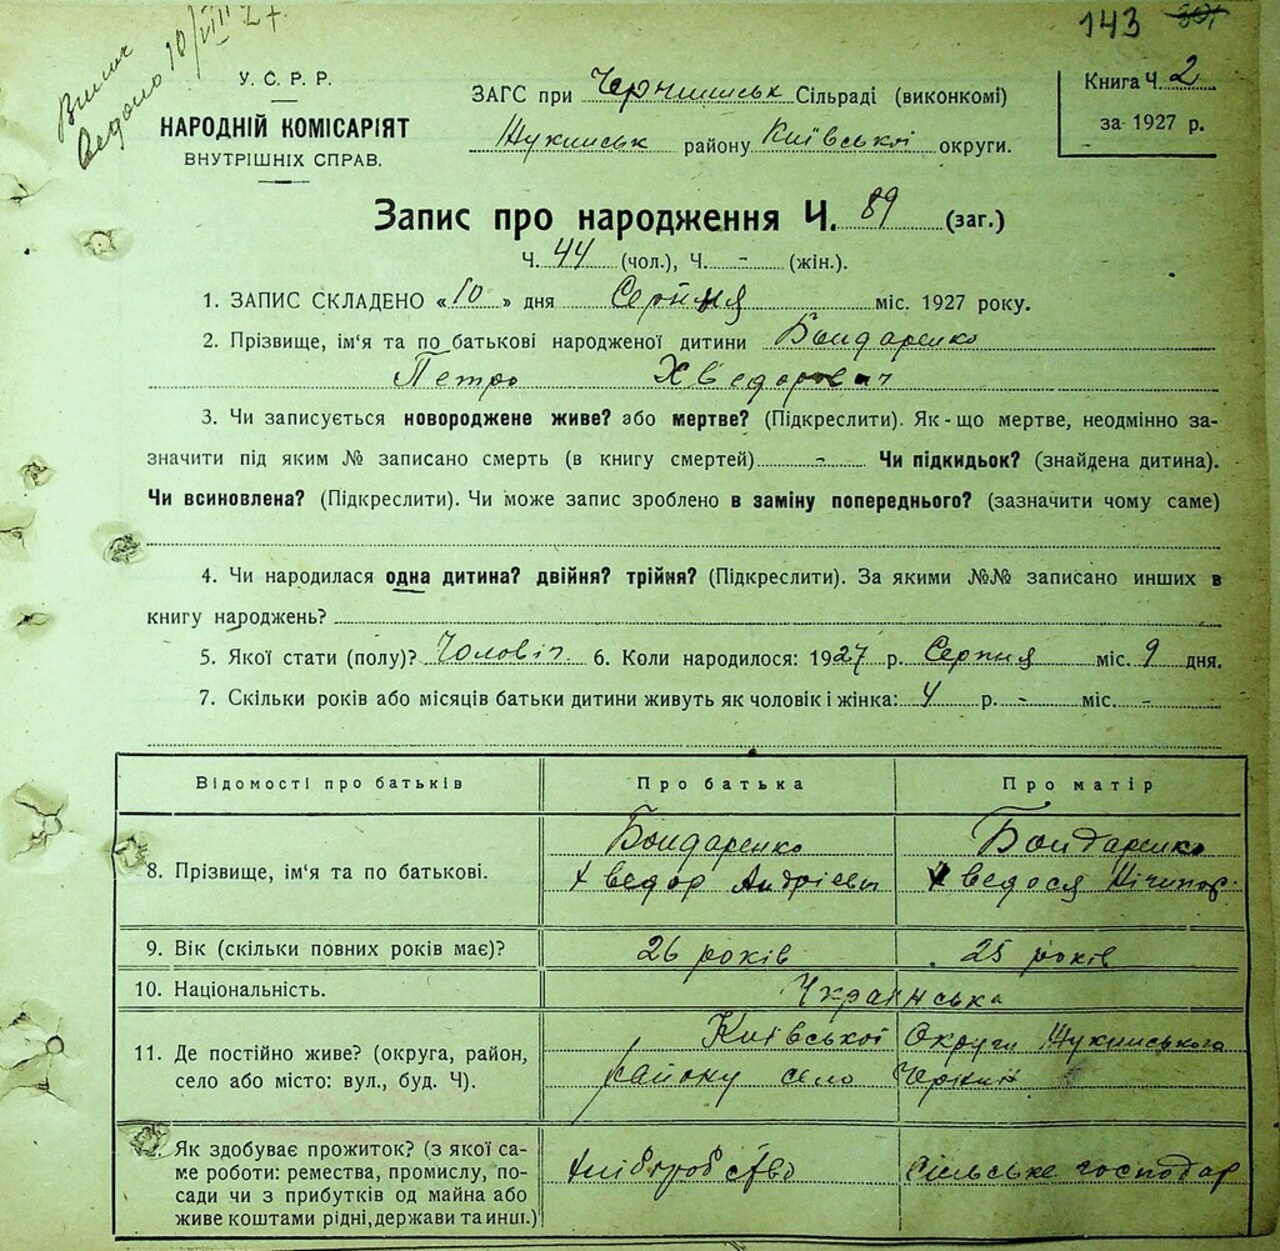 Випис
видано 10/VIII 27
143
У. С. Р. Р.
НАРОДНІЙ КОМІСАРІЯТ
ВНУТРІШНІХ СПРАВ.
ЗАГС при Чернинськ Сільраді (виконкомі)
Жукинськ району Київської округи.
Книга Ч. 2
за 1927 р.
Запис про народження Ч. 89 (заг.)
Ч. 44 (чол.), Ч. - (жін.).
1. ЗАПИС СКЛАДЕНО «10» дня Серпня міс. 1927 року.
2. Прізвище, ім‘я та по батькові народженої дитини Бондаренко
Петро Хведорович
3. Чи записується новороджене живе? або мертве? (Підкреслити). Як-що мертве, неодмінно за-
значити під яким № записано смерть (в книгу смертей) - Чи підкидьок? (знайдена дитина).
Чи всиновлена? (Підкреслити). Чи може запис зроблено в заміну попереднього? (зазначити чому саме)
4. Чи народилася одна дитина? двійня? трійня? (Підкреслити). За якими №№ записано инших в
книгу народжень?
5. Якої стати (полу)? Чоловіч. 6. Коли народилося: 1927 р. Серпня міс. 9 дня.
7. Скільки років або місяців батьки дитини живуть як чоловік і жінка: 4 р. - міс. -
Відомості про батьків Про батька Про матір
8. Прізвище, ім‘я та по батькові.
Бондаренко Бондаренко
Хведор Андрієвич Хведося Нічипор.
9. Вік (скільки повних років має)? 26 років 25 років
10. Національність. Українська
11. Де постійно живе? (округа, район,
село або місто: вул., буд. Ч).
Київської Округи Жукинського
району село Чернин
12. Як здобуває прожиток? (з якої са-
ме роботи: ремества, промислу, по-
сади чи з прибутків од майна або
живе коштами рідні, держави та инш.)
хліборобство сільське господар